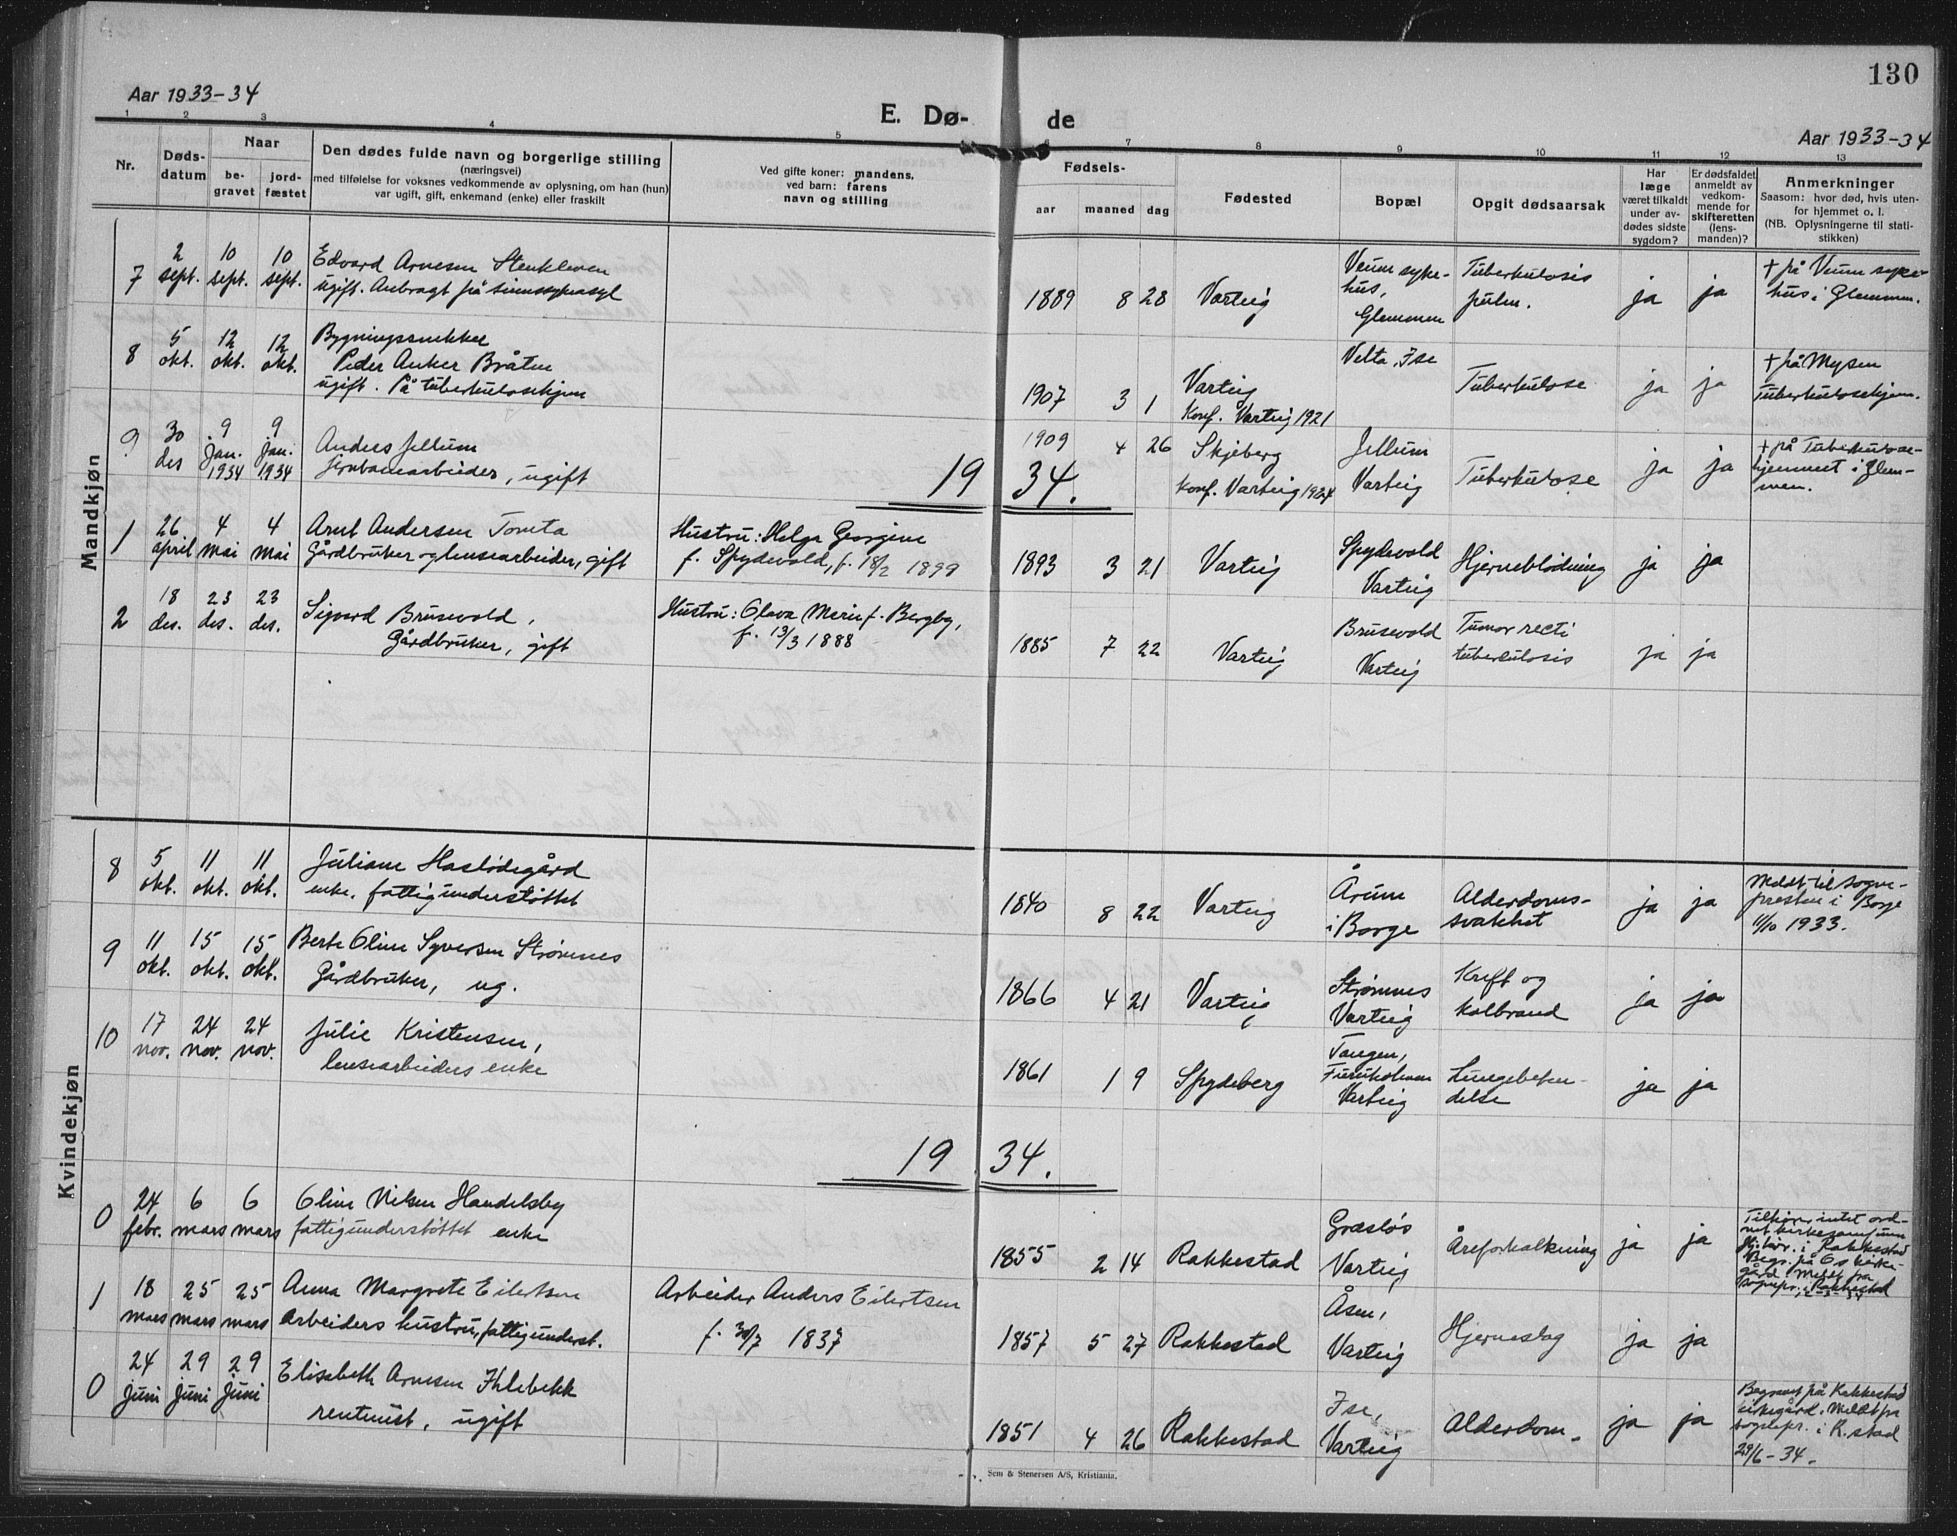 130
Aar 1933-34
E. Dø- de
Aar 1933-34
1 2 3 4 5 6 7 8 9 10 11 12 13
Nr.
Døds-
datum
Naar
be-
gravet
jord-
fæstet
Den dødes fulde navn og borgerlige stilling
(næringsvei)
med tilføielse for voksnes vedkommende av oplysning, om han (hun)
var ugift, gift, enkemand (enke) eller fraskilt
Ved gifte koner: mandens,
ved barn: farens
navn og stilling
Fødsels-
aar maaned dag
Fødested
Bopæl
Opgit dødsaarsak
Har
læge
været tilkaldt
under av-
dødes sidste
sygdom?
Er dødsfaldet
anmeldt av
vedkom-
mende for
skifteretten
(lens-
manden)?
Anmerkninger
Saasom: hvor død, hvis uten-
for hjemmet o. l.
(NB. Oplysningerne til stati-
stikken)
Mandkjøn
7
2 sept.
10 sept.
10 sept.
Edvard Arnesen Stenkleven
ugift. Anbragt på sinnssykeasyl
1889 8 28
Varteig
Veum syke-
hus,
Glemmen
Tuberkulosis
pulm.
ja ja
+ på Veum syke-
hus i Glemmen.
8
5 okt.
12 okt.
12 okt.
Bygningssnekker
Peder Anker Bråten
ugift. På tuberkulosehjem
1907 3 1
Varteig
Konf. Varteig 1921
Velta, Ise
Tuberkulose
ja ja
+ på Mysen
Tuberkulosehjem.
9
30 des
9 Jan. 1934
9 Jan. 1934
Anders Jellum
Jernbanearbeider, ugift
1909 4 26
Skjeberg
Konf. Varteig 1924
Jellum
Varteig
Tuberkulose
ja ja
+ på Tuberkulose-
hjemmet i Glem-
men.
19 34.
1
26 april
4 mai
4 mai
Arnt Andersen Tomta
Gårdbruker og lensearbeider, gift
Hustru: Helga Georgine
f. Spydevold, f. 18/2 1899
1893 3 21
Varteig
Spydevold
Varteig
Hjerneblødning
ja ja
2
18 des.
23 des.
23 des.
Sigvard Brusevold,
Gårdbruker, gift
Hustru: Olava Marie f. Bergby,
f. 13/3 1888
1885 7 22
Varteig
Brusevold
Varteig
Tumor recti
tuberkulosis
ja ja
Kvindekjøn
8
5 okt.
11 okt.
11 okt.
Juliane Haslødegård
enke. fattigunderstøttet
1840 8 22
Varteig
Årum
i Borge
Alderdoms-
svakhet
ja ja
Meldt til sogne-
presten i Borge
11/10 1933.
9
11 okt.
15 okt.
15 okt.
Berte Oline Syversen Strømnes
Gårdbruker, ug.
1866 4 21
Varteig
Strømnes
Varteig
Kreft og
kolbrand
ja ja
10
17 nov.
24 nov.
24 nov.
Julie Kristensen,
lensearbeiders enke
1861 1 9
Spydeberg
Tangen,
Furuholmen
Varteig
Lungebeten-
delse
ja ja
19 34.
0
24 febr.
6 mars
6 mars
Oline Nilsen Handelsby
fattigunderstøttet enke
1855 2 14
Rakkestad
Græsløs
Varteig
Åreforkalkning
ja ja
Tilhører intet ord-
net kirkesamfunn
Hj.hør. i Rakkestad
Begr. på Os kirke-
gård. Meldt fra
sognepr. i Rakkestad
1
18 mars
25 mars
25 mars
Anna Margrete Eilertsen
Arbeiders hustru, fattigunderst.
Arbeider Anders Eilertsen
f. 30/7 1837
1857 5 27
Rakkestad
Åsen,
Varteig
Hjerneslag
ja ja
0
24 juni
29 juni
29 juni
Elisabeth Arnesen Ihlebekk
rentenist, ugift
1851 4 26
Rakkestad
Ise,
Varteig
Alderdom.
ja ja
Begravet på Rakkestad
kirkegård. Meldt fra
sognepr. i R.stad
29/6-34.
Sem & Stenersen A/S, Kristiania.